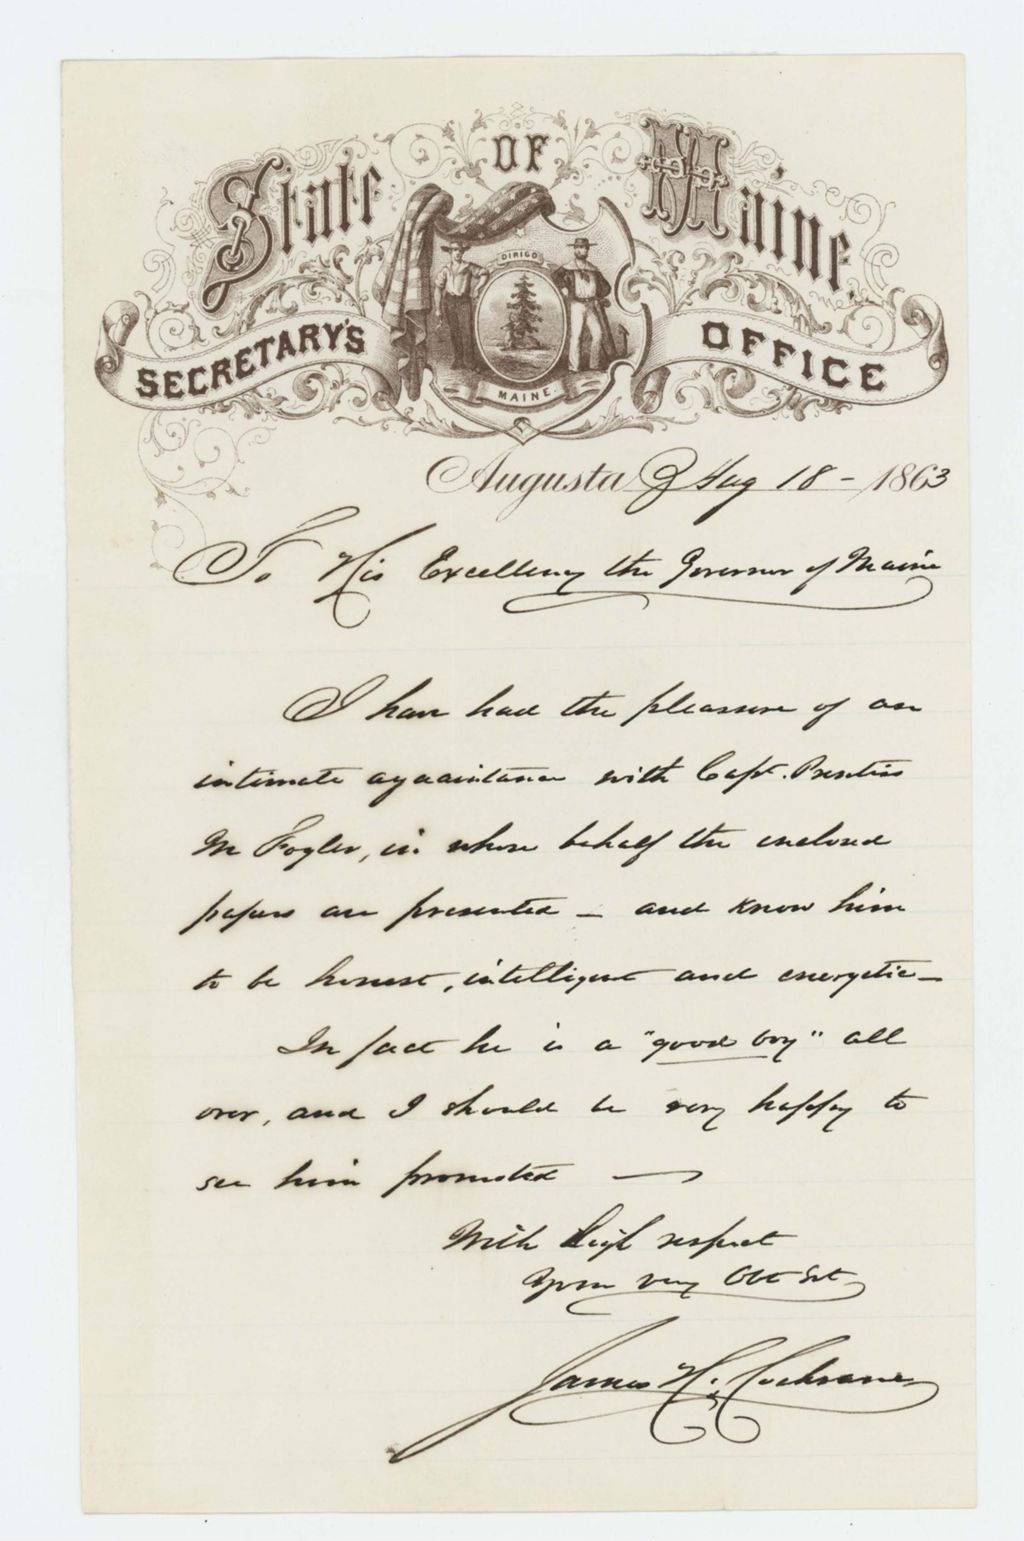 State OF Maine
SECRETARY'S OFFICE
DIRIGO
MAINE
Augusta, Aug 18 - 1863
To His Excellency the Governor of Maine
I have had the pleasure of an
intimate acquaintance with Capt. Prentiss
M Fogler, in whose behalf the enclosed
papers are presented - and know him
to be honest, intelligent and energetic -
In fact he is a "good boy" all
over, and I should be very happy to
see him promoted —
With high respect
Your very Obt Svt
James H. Cochrane